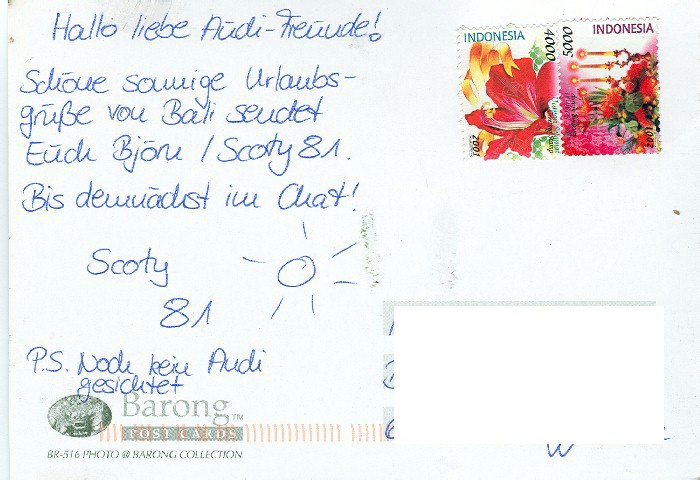 Hallo liebe Audi-Freunde!
Schöne sonnige Urlaubs-
grüße von Bali sendet
Euch Björn / Scoty 81.
Bis demnächst im Chat!
Scoty
81
P.S. Noch kein Audi
gesichtet
INDONESIA
4000
2001
INDONESIA
5000
Barong™
POST CARDS
BR-516 PHOTO @ BARONG COLLECTION